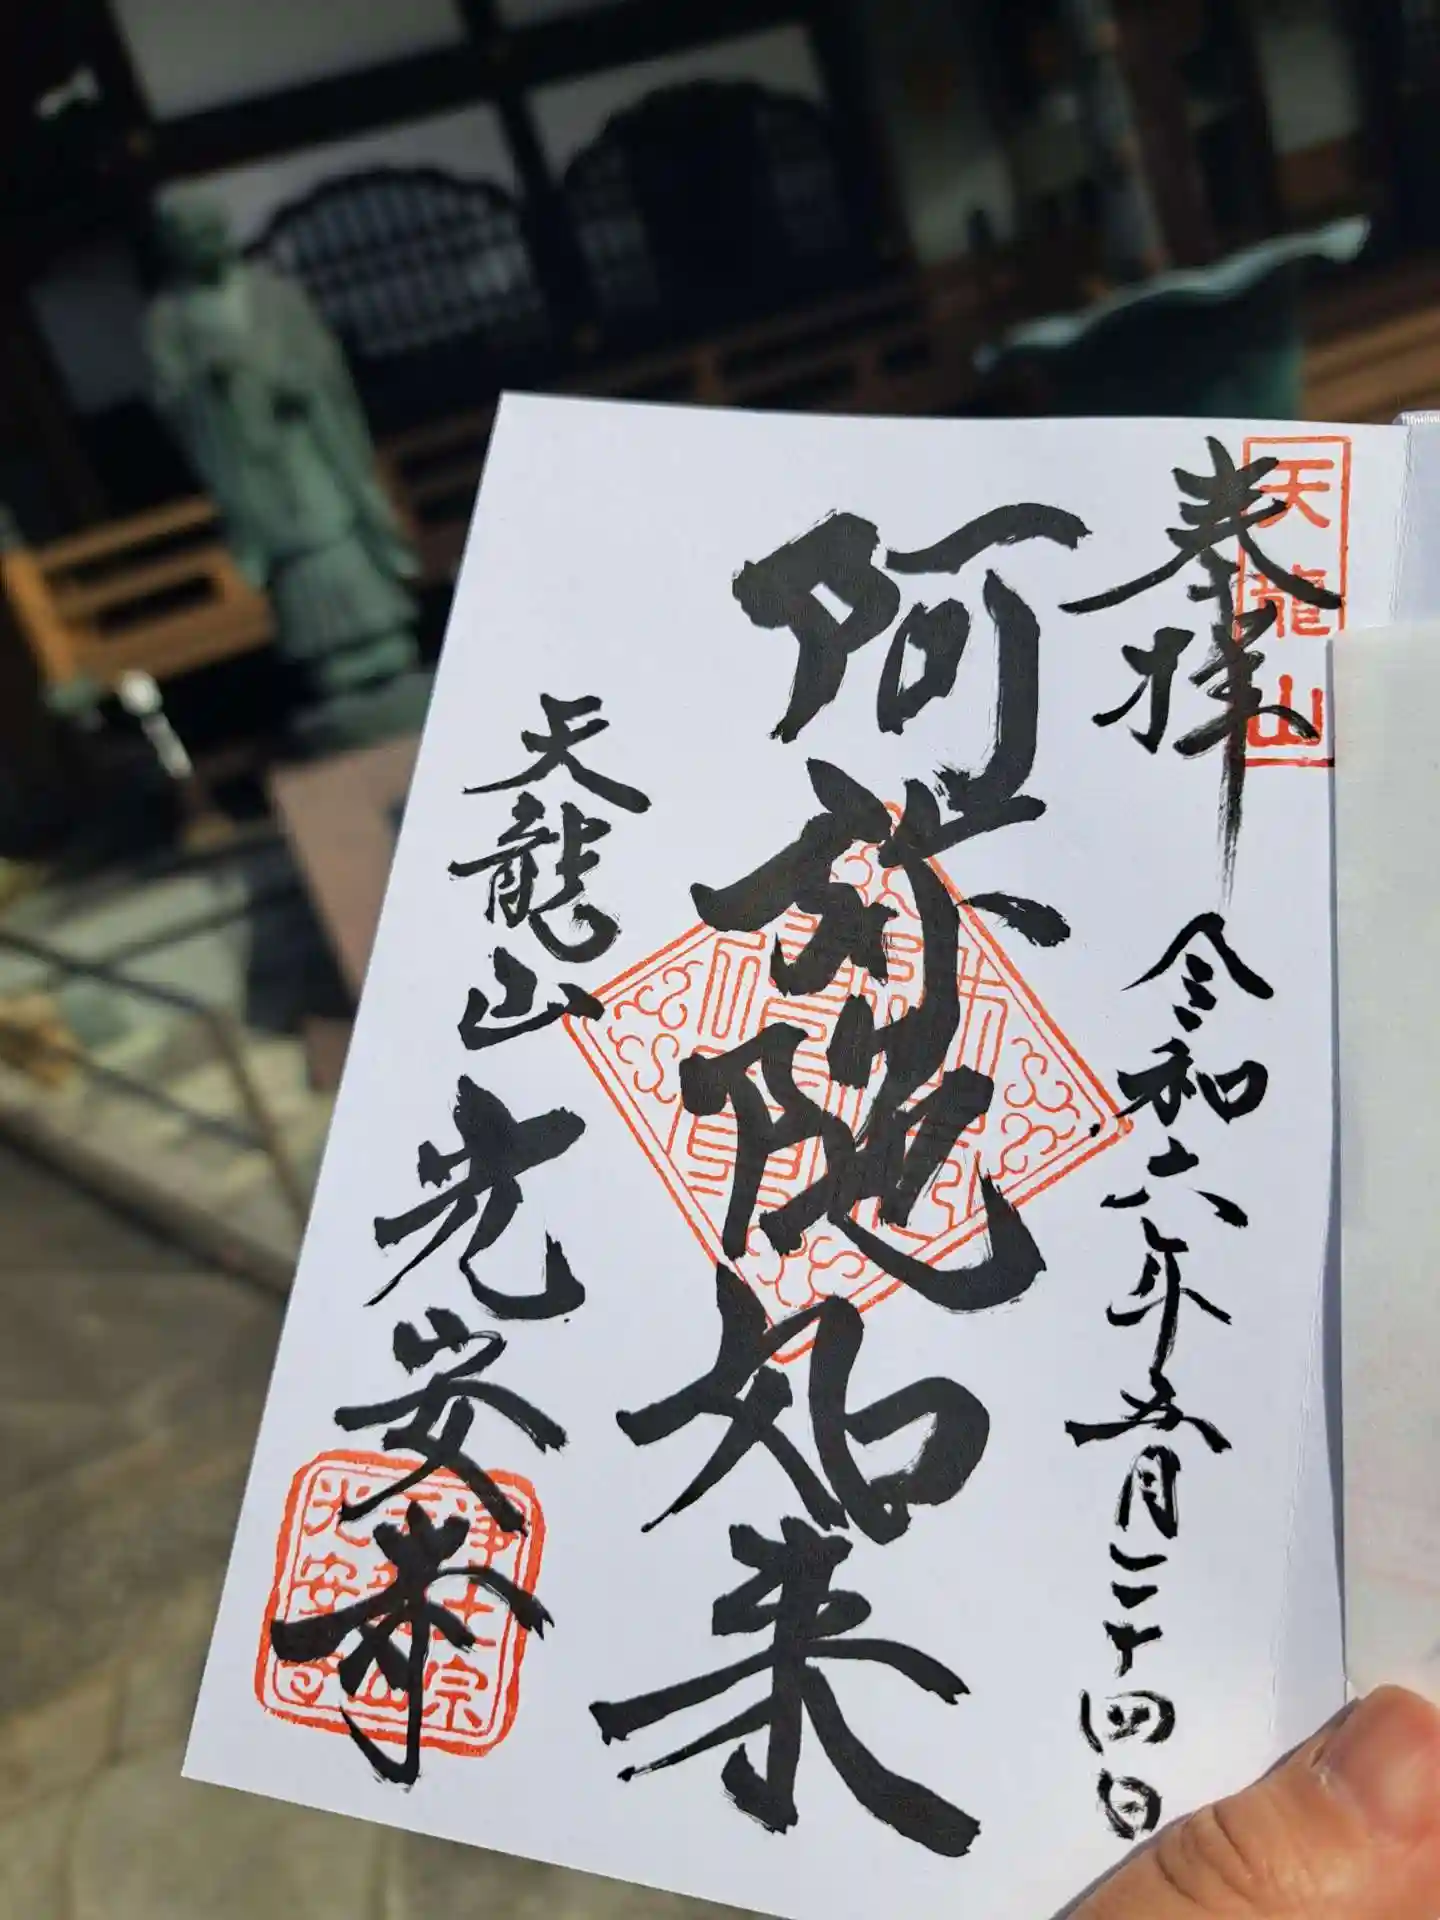 奉拝
天龍山
令和六年五月二十四日
阿弥陀如来
天龍山
光安寺
浄土宗
天龍山
光安寺